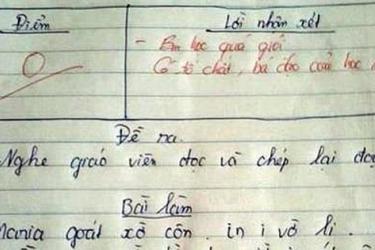 Điểm
Lời nhân xét
- Em học quá giỏi
Có tố chất, bá đạo của học
0
Đề ra
Nghe giáo viên đọc và chép lại đoạ
Bài làm
Mania goát xờ côn. in i vờ li.